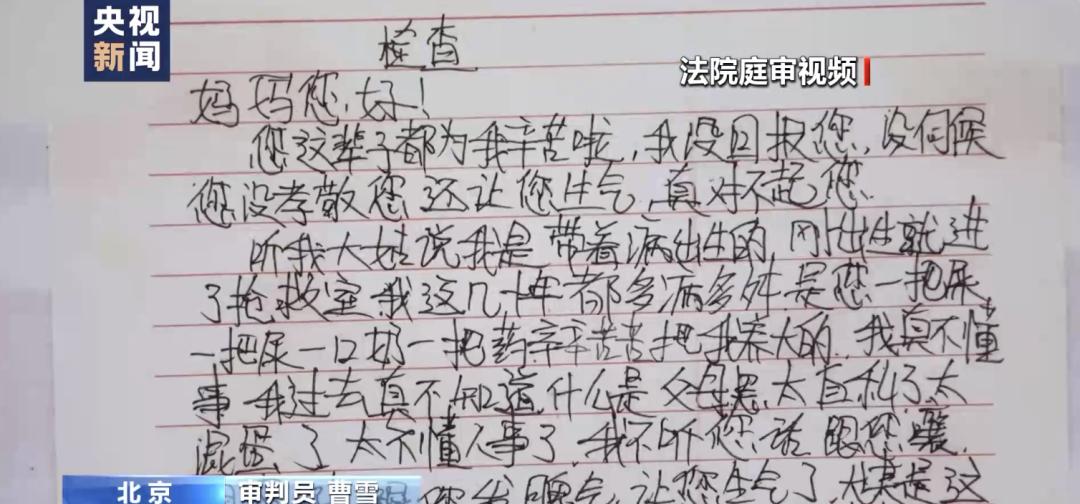 央视
新闻
检查
法院庭审视频
妈妈您好!
您这辈子都为我辛苦啦,我没回报您,没伺候
您没孝敬您还让您生气,真对不起您
听我大姑说我是带着病出生的刚出生就进
了抢救室我这几十年都多病多灾是您一把屎
一把尿一口奶一把药辛辛苦苦把我养大的,我真不懂
事我过去真不知道什么是父母恩,太自私了,太
混蛋了太不懂人事了,我不听您话跟您嚷,
您我 气,让您生气了 这
北京 审判员 曹雪